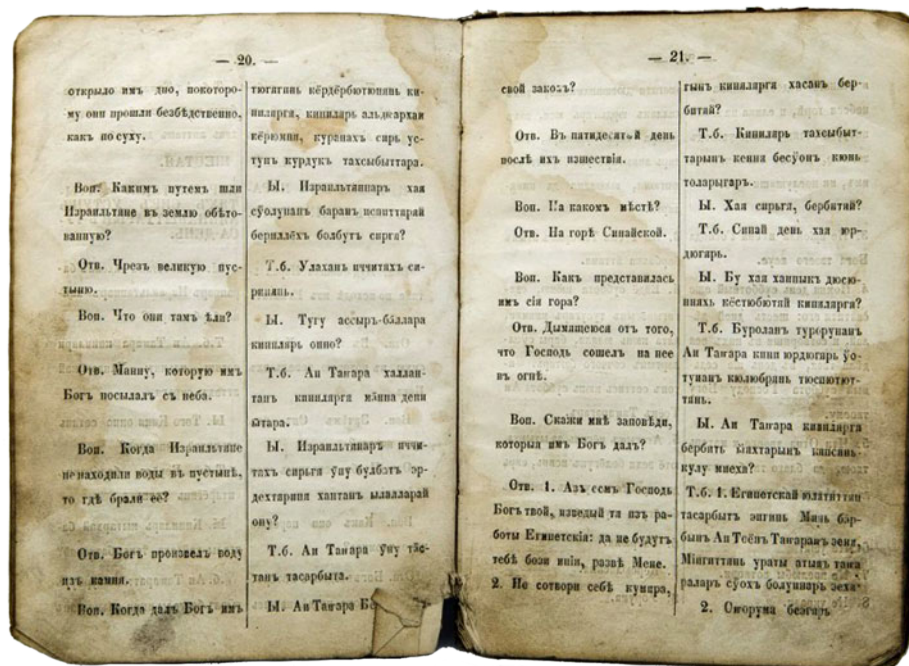 — 20. —
открыло имъ дно, покоторо-
му они прошли безбѣдственно,
какъ по суху.
Воп. Какимъ путемъ шли
Израильтяне въ землю обѣто-
ванную?
Отв. Чрезъ великую пус-
тыню.
Воп. Что они тамъ ѣли?
Отв. Манну, которую имъ
Богъ посылалъ съ неба.
Воп. Когда Израильтяне
не находили воды въ пустынѣ,
то гдѣ брали её?
Отв. Богъ произвелъ воду
изъ камня.
Воп. Когда далъ Богъ имъ
тюгягинь кёрдёрбютюнянь ки-
ниляргя, киниляръ альджархай
кёрюмня, куранахъ сирь ус-
тунъ курдукъ тахсыбыттара.
Ы. Израильтяннаръ хая
сўолунанъ баранъ испиттярай
бериллёхъ болбутъ сиргя?
Т.б. Улаханъ иччитахъ си-
ринянь.
Ы. Тугу ассыръ-баллара
киниляръ онно?
Т.б. Аи Таҥара халлан-
танъ киниляргя манна депи
ытара.
Ы. Израильтяннаръ иччи-
тахъ сирьгя ўну булбатъ эр-
дехтяриня хантанъ ылалларай
ону?
Т.б. Аи Таҥара ўну тăс-
танъ тасарбыта.
Ы. Аи Таҥара
— 21. —
свой законъ?
Отв. Въ пятидесятый день
послѣ ихъ изшествія.
Воп. На какомъ мѣстѣ?
Отв. На горѣ Синайской.
Воп. Какъ представилась
имъ сія гора?
Отв. Дымящеюся отъ того,
что Господь сошелъ на нее
въ огнѣ.
Воп. Скажи мнѣ заповѣди,
которыя имъ Богъ далъ?
Отв. 1. Азъ есмь Господь
Богъ твой, изведый тя изъ ра-
боты Египетскія: да не будутъ
тебѣ бози иніи, развѣ Мене.
2. Не сотвори себѣ кумира,
гынъ киниляргя хасанъ бер-
битяй?
Т.б. Киниляръ тахсыбыт-
тарынъ кення бесўонъ кюнь
толарыгаръ.
Ы. Хая сирьгя, бербитяй?
Т.б. Синай денъ хая юр-
дюгярь.
Ы. Бу хая ханныкъ дюсю-
нняхь кёстюбютяй киниляргя?
Т.б. Буролапъ турорунанъ
Аи Таҥара кини юрдюгярь ўо-
тунанъ кюлюбрянь тюспютют-
тянь.
Ы. Аи Таҥара киниляргя
бербитъ ыяхтарынъ капсянь-
кулу миеха?
Т.б. 1. Египетскай
тасарбытъ энгинь Минь бэр-
бынъ Аи Тоёнъ Таҥаранъ эеня,
Мигиттянь ураты атыяъ таҥа
раларъ сўохъ болуннаръ эеха-
2. Оҥорума безгаръ